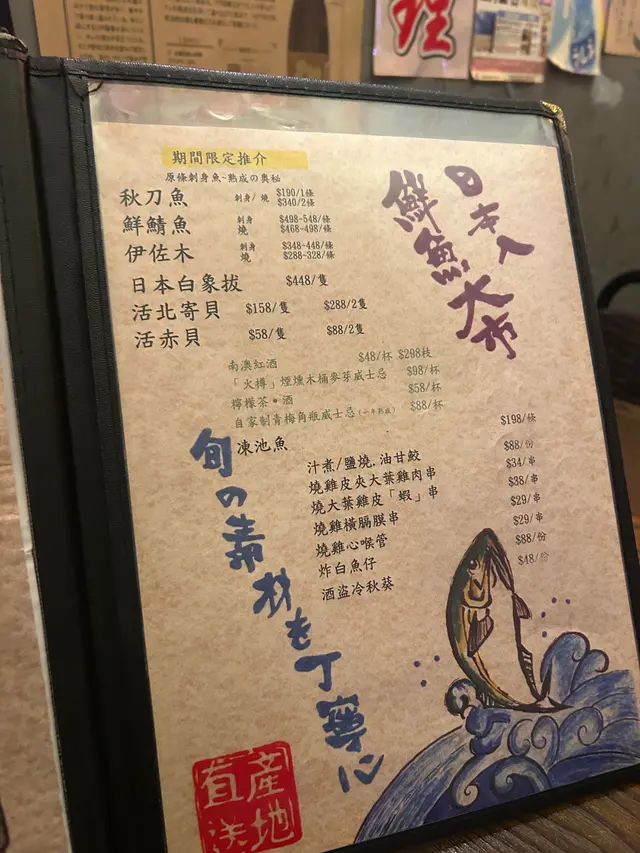 理
期間限定推介
原條刺身魚~熟成の奥秘
秋刀魚 刺身/燒 $190/1條 $340/2條
鮮鯖魚 刺身 $498-548/條
燒 $468-498/條
伊佐木 刺身 $348-448/條
燒 $288-328/條
日本白象拔 $448/隻
活北寄貝 $158/隻 $288/2隻
活赤貝 $58/隻 $88/2隻
日本人
鮮魚大市
南澳紅酒 $48/杯 $298枝
「火樽」煙燻木桶麥芽威士忌 $98/杯
檸檬茶•酒 $58/杯
自家制青梅角瓶威士忌(一年熟成) $88/杯
凍池魚 $198/條
汁煮/鹽燒,油甘鮫 $88/份
燒雞皮夾大葉雞肉串 $34/串
燒大葉雞皮「蝦」串 $38/串
燒雞橫膈膜串 $29/串
燒雞心喉管 $29/串
炸白魚仔 $88/份
酒盜冷秋葵 $48/份
旬の素材を丁寧に
産地
直送